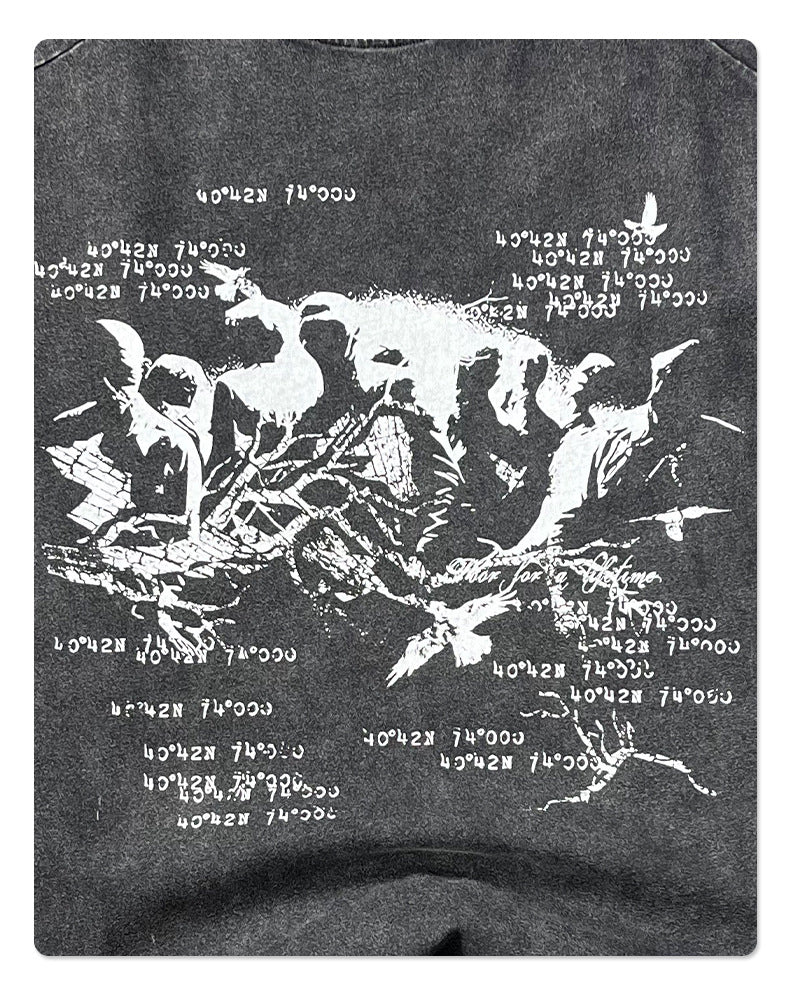 40°42N 74°000
40°42N 74°000
40°42N 74°000
40°42N 74°000
40°42N 74°000
40°42N 74°000
40°42N 74°000
40°42N 74°000
40°42N 74°000
40°42N 74°000
for a lifetime
40°42N 74°000
40°42N 74°000
40°42N 74°000
40°42N 74°000
40°42N 74°000
40°42N 74°000
40°42N 74°050
40°42N 74°000
40°42N 74°000
40°42N 74°000
40°42N 74°000
40°42N 74°000
40°42N 74°000
40°42N 74°000